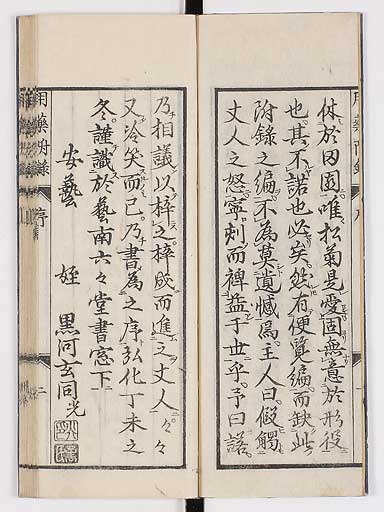 休於田園。唯松菊是愛。固無意於形役
也。其不諾也必矣。然有便覧編。而缺此
附録之編。不為莫遺憾焉。主人曰。假觸
丈人之怒。寧刺而裨益于世乎。予曰諾。
乃相議以梓之。梓成而進之丈人。々々
又冷笑而已。乃書為之序。弘化丁未之
冬。謹識於藝南六々堂書窓下
安藝 姪 黒河玄同光
用藥附録 序 二